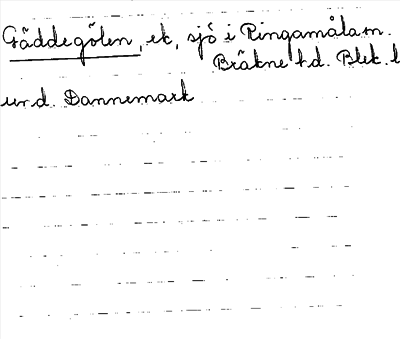 Gäddegölen, ek, sjö i Ringamåla sn.
Bräkne hd. Blek. l
und. Dannemark